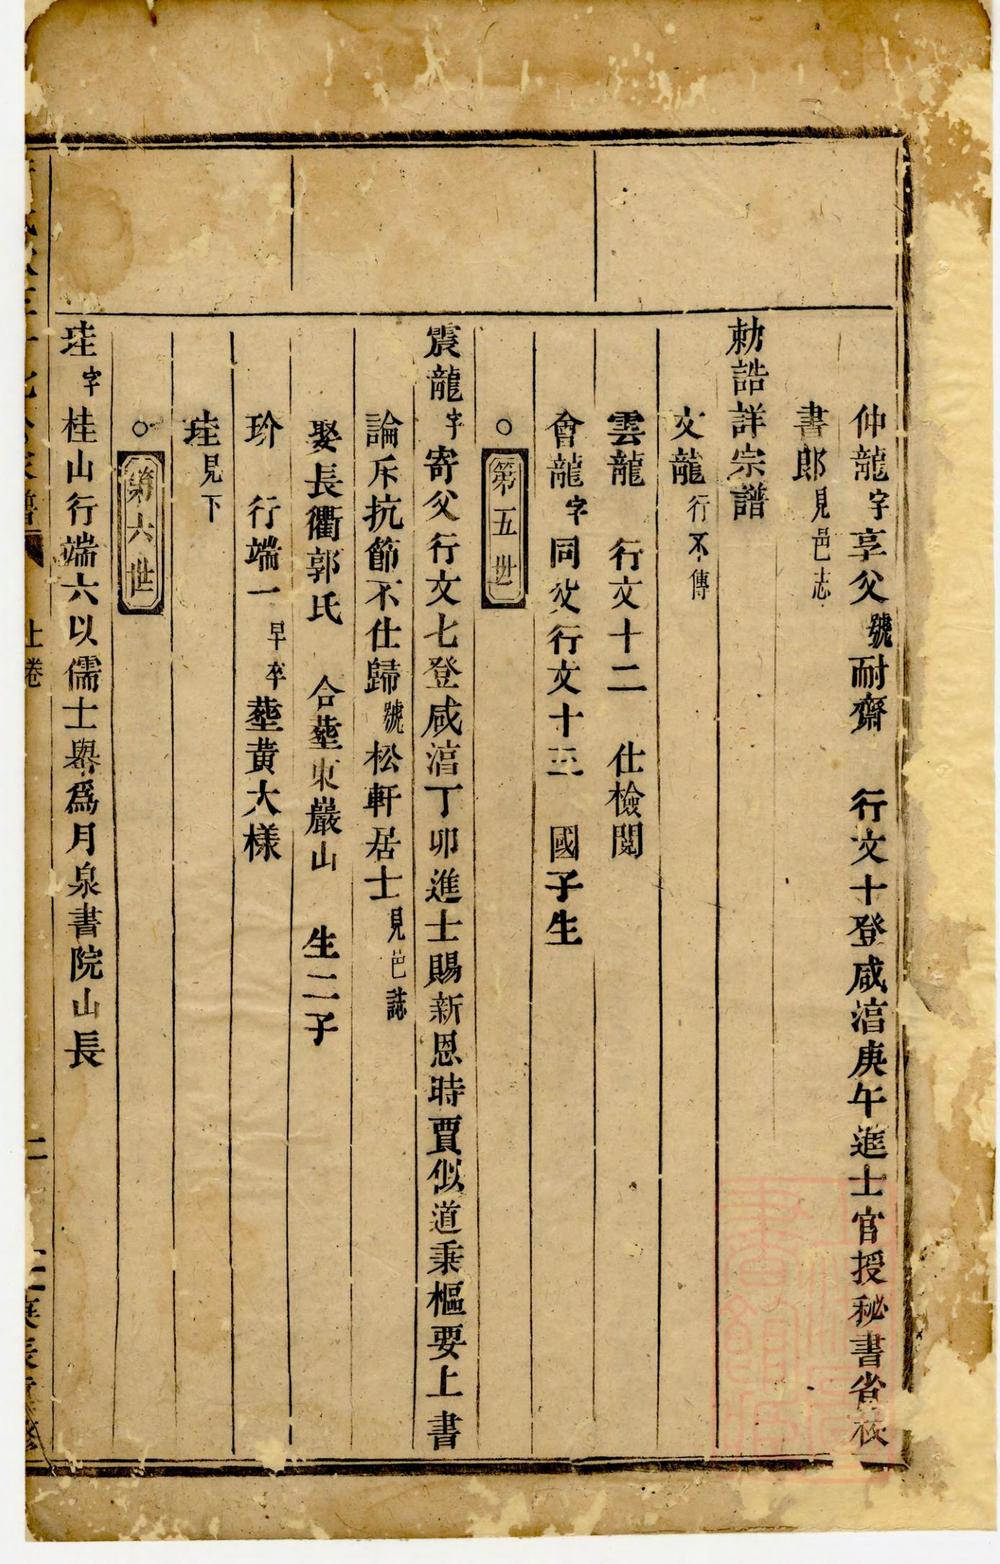 仲龍字享父號耐齋 行文十登咸淳庚午進士官授秘書省校
書郎見邑志
勅誥詳宗譜
文龍行不傳
雲龍 行文十二 仕檢閱
會龍字同父行文十三 國子生
○第五世
震龍字寄父行文七登咸淳丁卯進士賜新恩時賈似道秉樞要上書
論斥抗節不仕歸號松軒居士見邑誌
娶長衢郭氏 合塟東巖山 生二子
玠 行端一早卒塟黄大様
珪見下
○第六世
珪字桂山行端六以儒士舉爲月泉書院山長
上卷